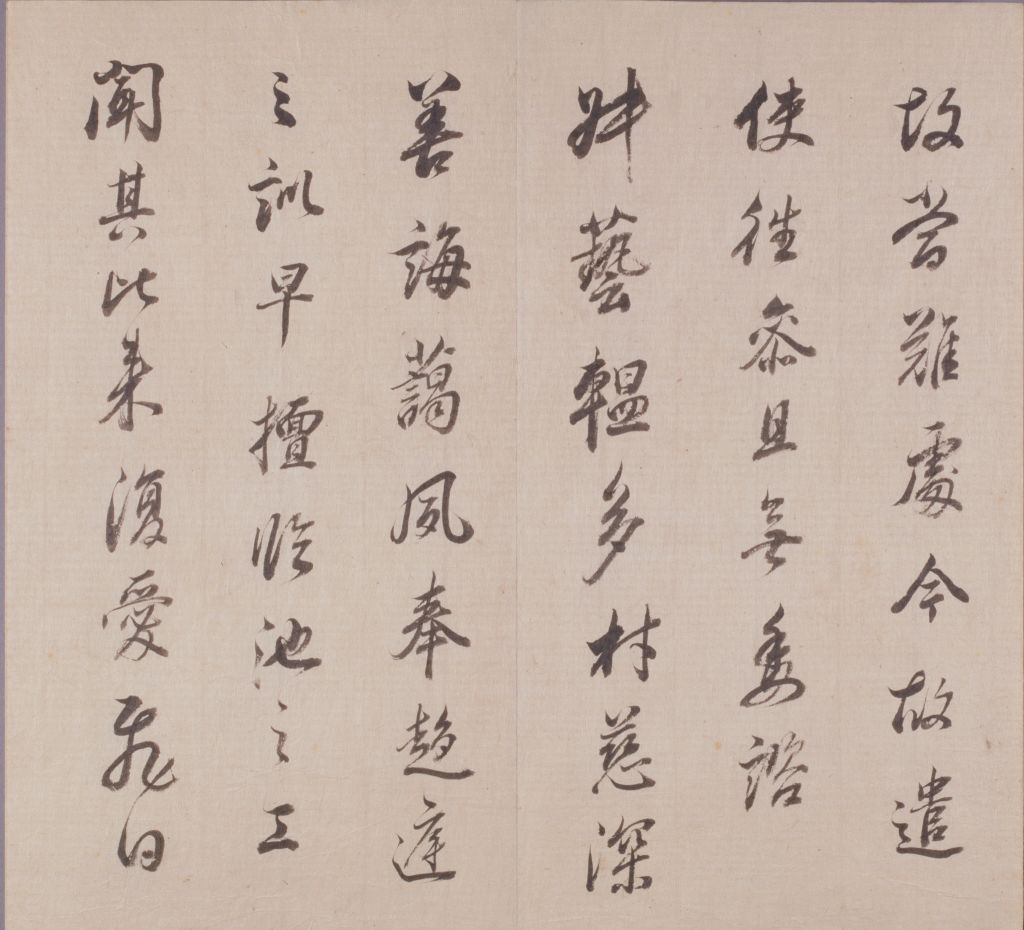 故當難處今故遣
使往參且無委諮
叔藝韞多材慈深
善誨藹夙奉趨庭
之訓早擅臨池之工
聞其比來復愛飛白